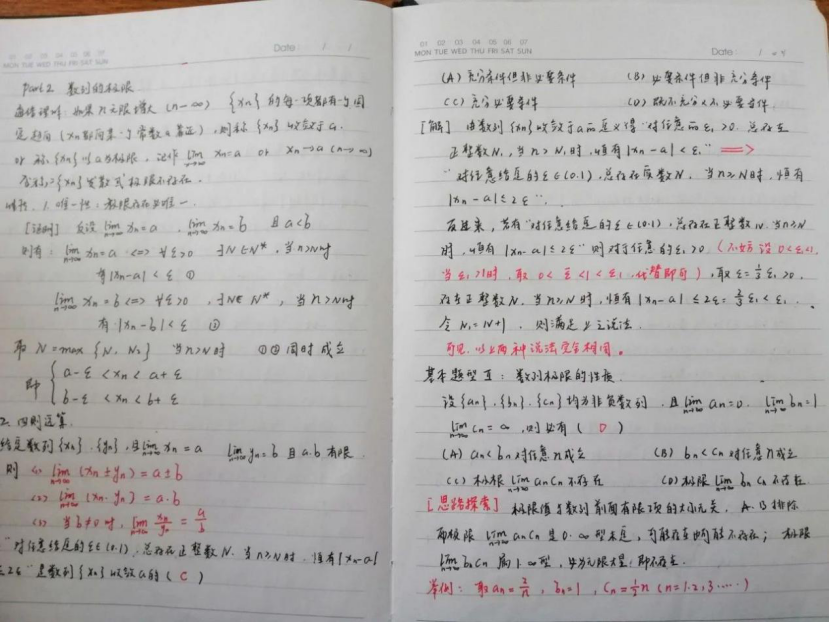 Date / /
MON TUE WED THU FRI SAT SUN
Part 2 数列的极限
直维理解: 如果n无限增大 (n→∞) {xn} 的每一项都有一个固
定趋向 (xn都向某一个常数a靠近), 则称 {xn} 收敛于a.
or 称 {xn} 以a为极限, 记作 lim n→∞ xn=a or xn→a (n→∞)
否则称{xn}发散或极限不存在.
1. 唯一性: 极限存在必唯一.
[证明] 反设 lim n→∞ xn=a , lim n→∞ xn=b 且 a<b
则有: lim n→∞ xn=a <=> ∀ε>0 ∃N∈N*, 当n>N时
有|xn-a|<ε ①
lim n→∞ xn=b <=> ∀ε>0 , ∃N∈N*, 当n>N时
有|xn-b|<ε ②
取 N=max {N, N2} 当n>N时 ①②同时成立
即 { a-ε<xn<a+ε
b-ε<xn<b+ε
2. 四则运算.
给定数列{xn}.{yn}, 且lim n→∞ xn=a lim n→∞ yn=b 且a.b有限.
则 (1) lim n→∞ (xn±yn)=a±b
(2) lim n→∞ (xn·yn)=a·b
(3) 当b≠0时, lim n→∞ xn/yn = a/b
"对任意给定的ε∈(0.1), 总存在正整数N. 当n≥N时, 恒有|xn-a|
≤2ε" 是数列{xn}收敛a的 ( C )
01 02 03 04 05 06 07
MON TUE WED THU FRI SAT SUN
Date /
(A) 充分条件但非必要条件 (B) 必要条件但非充分条件
(C) 充分必要条件 (D) 既不充分又不必要条件
[解] 由数列{xn}收敛于a的定义得 "对任意的ε1>0. 总存在
正整数N1, 当n>N1时, 恒有|xn-a|<ε1" =>
"对任意给定的ε∈(0.1), 总存在正整数N. 当n≥N时, 恒有
|xn-a|≤2ε".
反过来, 若有"对任意给定的ε∈(0.1), 总存在正整数N. 当n≥N
时, 恒有|xn-a|≤2ε" 则对于任意的ε1>0 (不妨设0<ε1<1.
当ε1>1时, 取0<ε<1<ε1, 代替即可), 取ε=⅓ε1>0.
存在正整数N. 当n≥N时, 恒有|xn-a|≤2ε=⅔ε1<ε1.
令N1=N+1, 则满足定义说法.
可见, 以上两种说法完全相同.
基本题型Ⅱ: 数列极限的性质.
设{an}.{bn}.{cn}均为非负数列. 且lim n→∞ an=0. lim n→∞ bn=1
lim n→∞ cn=∞, 则必有 ( D )
(A) an<bn对任意n成立 (B) bn<cn对任意n成立
(C) 极限lim n→∞ ancn不存在 (D) 极限lim n→∞ bncn不存在
[思路探索] 极限值与数列前面有限项的大小无关, A.B排除
而极限lim n→∞ ancn是0·∞型未定, 可能存在也可能不存在; 极限
lim n→∞ bncn属1·∞型, 必为无限大量, 即不存在.
举例: 取an=2/n, bn=1, cn=½n (n=1.2.3……)